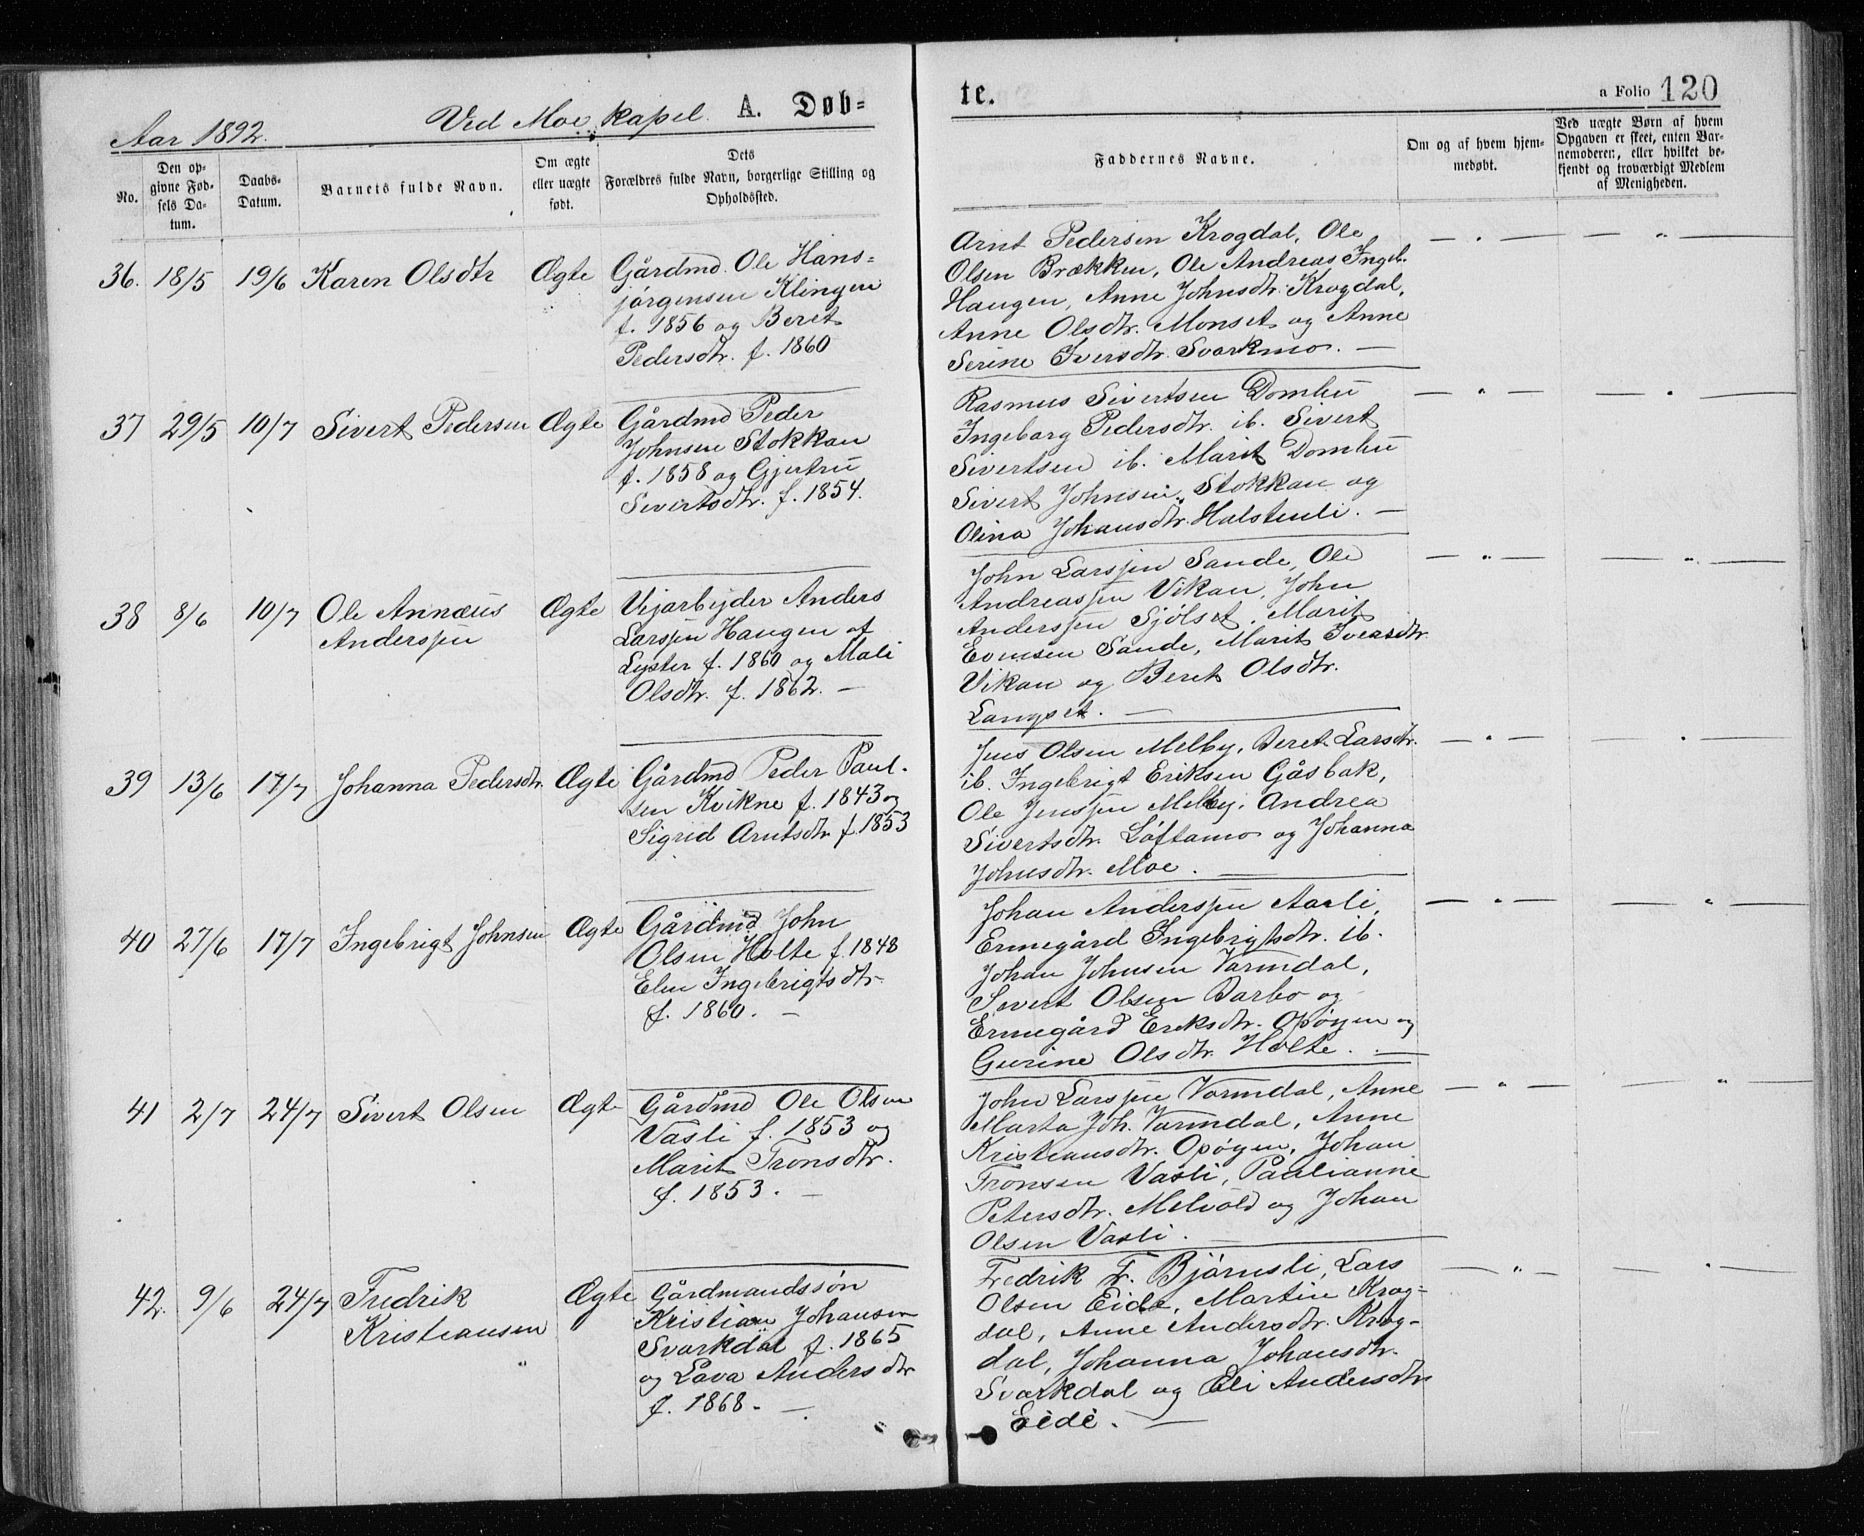 Aar 1892.
Ved Moe kapel. A. Døb=
te.
a Folio 120
No.
Den op-
givne Fød-
sels Da-
tum.
Daabs-
Datum.
Barnets fulde Navn.
Om ægte
eller uægte
født.
Dets
Forældres fulde Navn, borgerlige Stilling og
Opholdssted.
Faddernes Navne.
Om og af hvem hjem-
medøbt.
Ved uægte Børn af hvem
Opgaven er skeet, enten Bar-
nemoderen, eller hvilket be-
kjendt og troværdigt Medlem
af Menigheden.
36. 18/5 19/6 Karen Olsdtr Ægte
Gårdmd. Ole Hans=
jørgensen Klingen
f. 1856 og Beret
Pedersdtr. f. 1860
Arnt Pedersen Krogdal, Ole
Olsen Brækken, Ole Andreas Ingeb.
Haugen, Anne Johnsdtr. Krogdal,
Anne Olsdtr. Monset og Anne
Serine Iversdtr. Svarkmo. —
— " — — " —
37 29/5 10/7 Sivert Pedersen Ægte
Gårdmd Peder
Johnsen Stokkan
f. 1858 og Gjertru
Sivertsdtr. f. 1854.
Rasmus Sivertsen Domhu
Ingeborg Pedersdtr. ib. Sivert
Sivertsen ib. Marit Domhu
Sivert Johnsen Stokkan og
Olina Johansdtr. Halstenli. —
— " — — " —
38 8/6 10/7 Ole Annæus
Anderssen
Ægte
Vejarbejder Anders
Larssen Haugen af
Lyster f. 1860 og Mali
Olsdtr. f. 1862. —
John Larssen Sande, Ole
Andreassen Vikan, John
Anderssen Sjølset, Marit
Evensen Sande, Marit Iversdtr.
Vikan og Beret Olsdtr.
Langset. —
— " — — " —
39 13/6 17/7 Johanna Pedersdtr. Ægte
Gårdmd Peder Paul-
sen Kvikne f. 1843 og
Sigrid Arntsdtr f. 1853
Jens Olsen Melby, Beret Larsdtr.
ib. Ingebrigt Eriksen Gåsbak,
Ole Jenssen Melby, Andrea
Sivertsdtr. Løftamo og Johanna
Johnsdtr. Moe. —
— " — — " —
40 27/6 17/7 Ingebrigt Johnsen Ægte
Gårdmd John
Olsen Holte f. 1848
Elen Ingebrigtsdtr
f. 1860. —
Johan Anderssen Aasli,
Ermegård Ingebrigtsdtr. ib.
Johan Johnsen Varmdal,
Sivert Olsen Barbo og
Ermegård Eriksdtr. Opøyen og
Gurine Olsdtr. Holte. —
— " — — " —
41 2/7 24/7 Sivert Olsen Ægte
Gårdmd Ole Olsen
Vasli f. 1853 og
Marit Tronsdtr.
f. 1853. —
John Larssen Varmdal, Anne
Marta Joh. Varmdal, Anne
Kristiansdtr. Opøyen, Johan
Tronsen Vasli, Paulianne
Petersdtr. Melvold og Johan
Olsen Vasli. —
— " — — " —
42. 9/6 24/7 Fredrik
Kristiansen
Ægte
Gårdmandssøn
Kristian Johansen
Svarkdal f. 1865
og Lava Andersdtr
f. 1868. —
Fredrik Fr. Bjørnsli, Lars
Olsen Eide, Martin Krog-
dal, Anne Andersdtr. Krog-
dal, Johanna Johansdtr.
Svarkdal og Eli Andersdtr.
Eide. —
— " — — " —